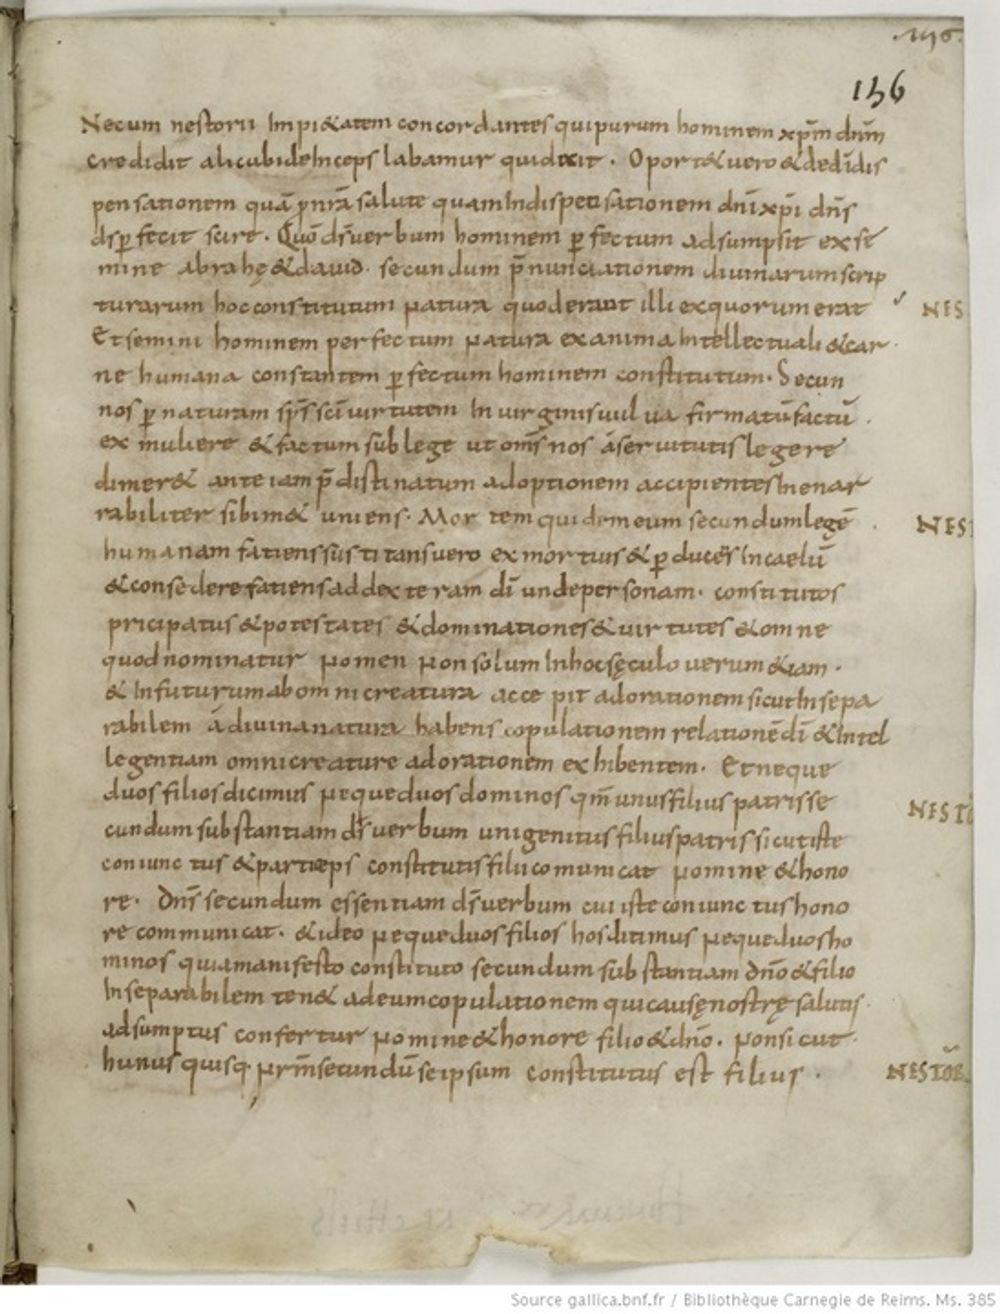 .196.
156
Necum nestorii Impi&atem concordantes quipurum hominem xp̄m dn̄m
credidit alicubideInceps labamur quidixit . Oport& vero & dedīdis
pensationem quā p̄nr̄a salute quamIndispensationem dn̄i xp̄i dn̄s
ds̄ p̱fecit scire . Quō ds̄ verbum hominem p̱fectum adsumpsit ex se
mine abrahę & dauid . secundum p̄nunciationem diuinarumscrip
turarum hocconstitutum natura quoderant illi exquorumerat
NES
Etsemini hominem perfectum natura exanima Intellectuali & car
ne humana constantem p̱fectum hominem constitutum . Secun
nos p̱ naturam sp̄s sc̄i uirtutem In uirginisuulua firmatū factū .
ex muliere & factum sub lege ut om̄s nos áseruitutis lege re
dimer& ante iam p̄distinatum adoptionem accipientes Inenar
rabiliter sibim& uniens . Mortem quidemeum secundumlegē .
NES
humanam fatiens sus ti tansuero exmortuis & p̱ducēs Incaelū
& consedere fatiens ad dexteram dī undepersonam . constitutos
pricipatus & potestates & dominationes & uirtutes & omne
quod nominatur nomen non solum Inhocsęculo uerum &iam .
& Infuturum abomni creatura accepit adorationem sicut Insepa
rabilem á diuinanatura habens copulationem relationē dī & Intel
legentiam omnicreature adorationem exhibentem . Etneque
duos filios dicimus nequeduos dominos qm̄ unusfilius patris se
NESTO
cundum substantiam ds̄ uerbum unigenitus filiuspatris sicutiste
coniunctus & particeps constitutis filiicomunicat nomine & hono
re . Dn̄s secundum essentiam ds̄ uerbum cui iste coniunctus hono
re communicat . & ideo nequeduos filios hos ditimus nequeduosho
minos quiamanifesto constituto secundum substantiam dn̄o & filio
Inseparabilem ten& adeumcopulationem quicausęnostrę salutis .
adsumptus confertur nomine & honore filio & dn̄o . nonsicut .
hunus quisq. nr̄m secundū seipsum constitutus est filius .
NESTOR
Source gallica.bnf.fr / Bibliothèque Carnegie de Reims. Ms. 385